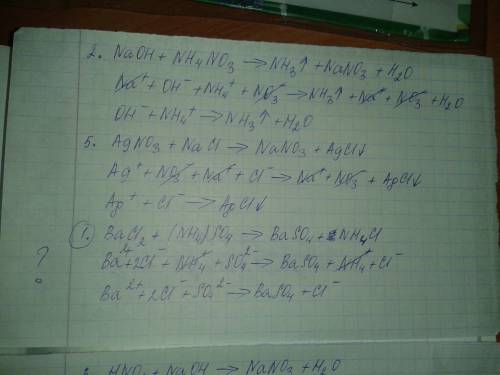 2. NaOH + NH₄NO₃ → NH₃↑ + NaNO₃ + H₂O
Na⁺ + OH⁻ + NH₄⁺ + NO₃⁻ → NH₃↑ + Na⁺ + NO₃⁻ + H₂O
OH⁻ + NH₄⁺ → NH₃↑ + H₂O
5. AgNO₃ + NaCl → NaNO₃ + AgCl↓
Ag⁺ + NO₃⁻ + Na⁺ + Cl⁻ → Na⁺ + NO₃⁻ + AgCl↓
Ag⁺ + Cl⁻ → AgCl↓
1. BaCl₂ + (NH₄)SO₄ → BaSO₄ + 2NH₄Cl
? Ba²⁺ + 2Cl⁻ + NH₄⁺ + SO₄²⁻ → BaSO₄ + NH₄⁺ + Cl⁻
Ba²⁺ + 2Cl⁻ + SO₄²⁻ → BaSO₄ + Cl⁻
3. HNO₃ + NaOH → NaNO₃ + H₂O